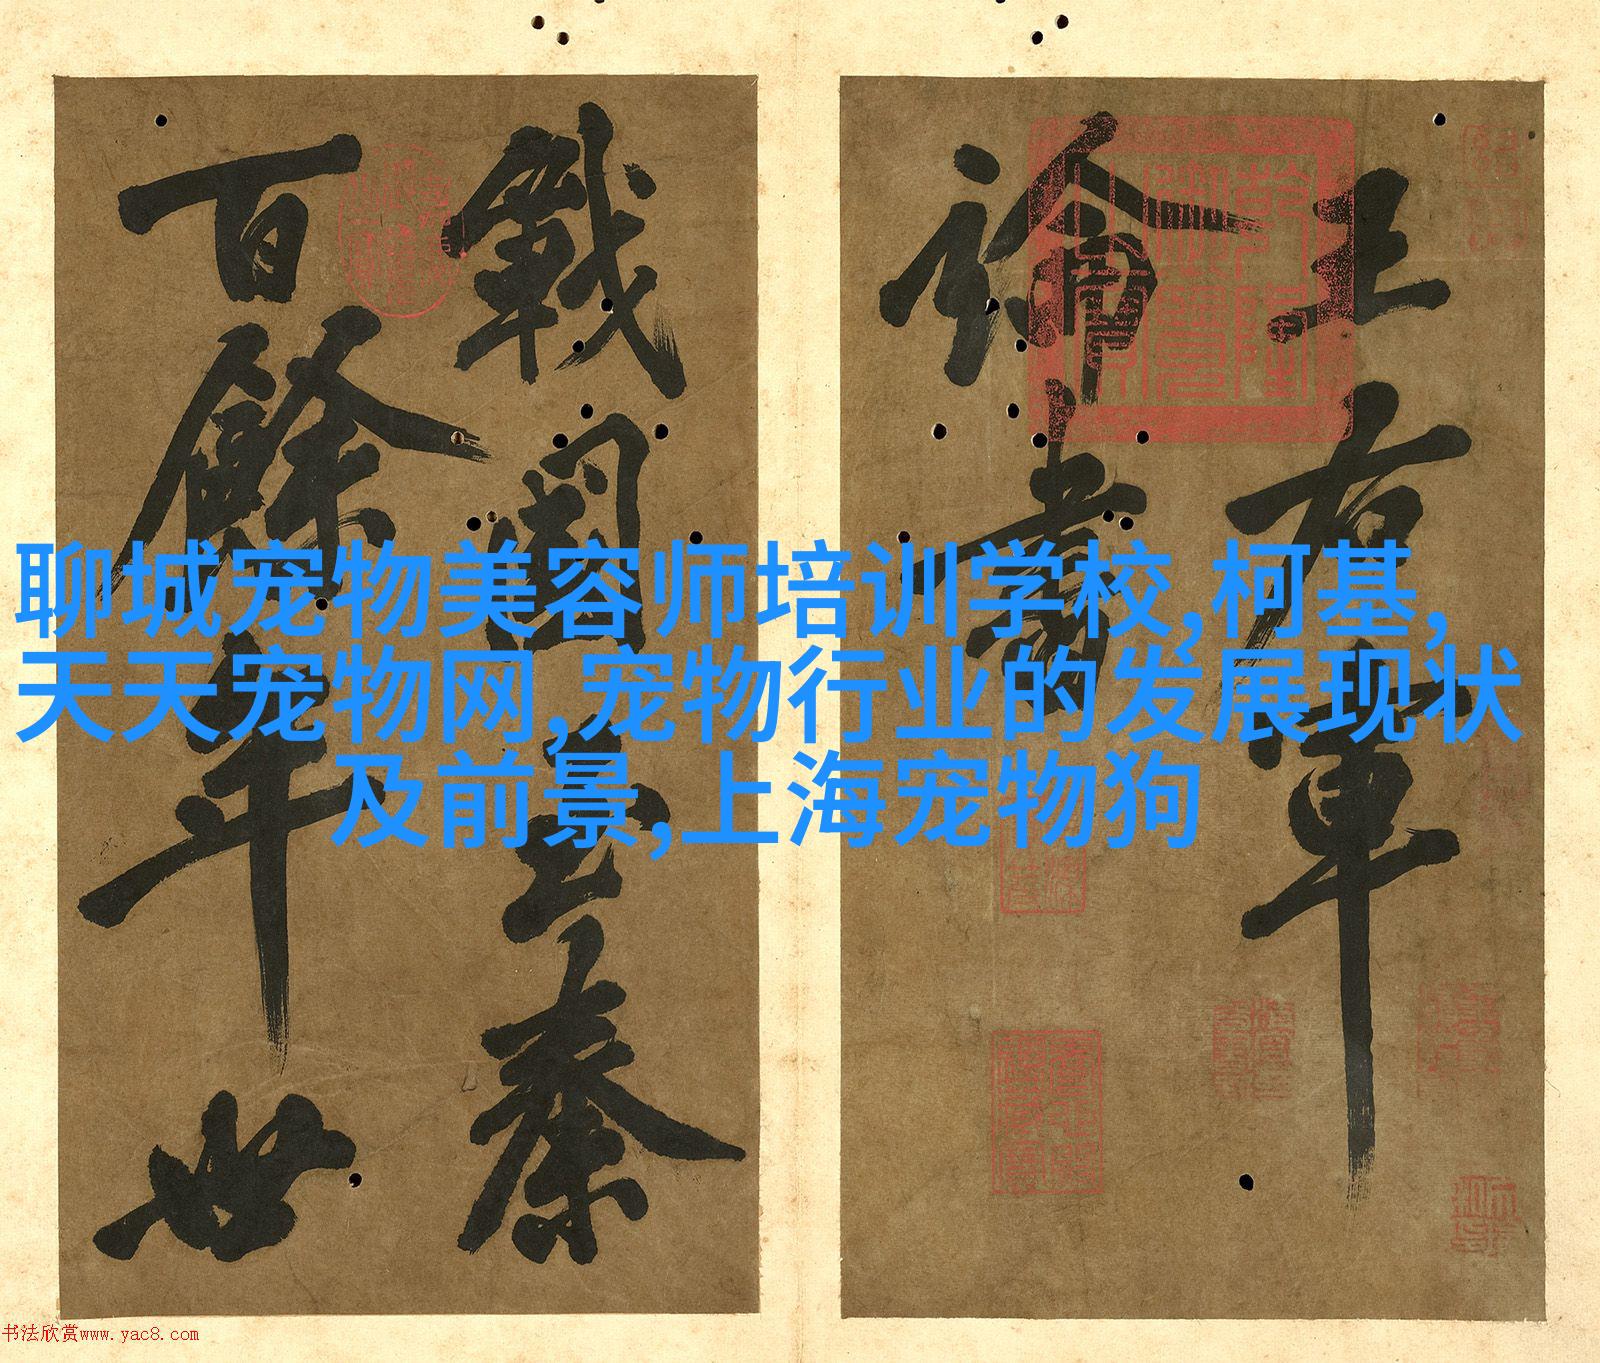 王右軍
論書
戰國至秦
百餘年世
乾隆御覽之寶
聊城宠物美容师培训学校,柯基,
天天宠物网,宠物行业的发展现状
及前景,上海宠物狗
书法欣赏www.yac8.com